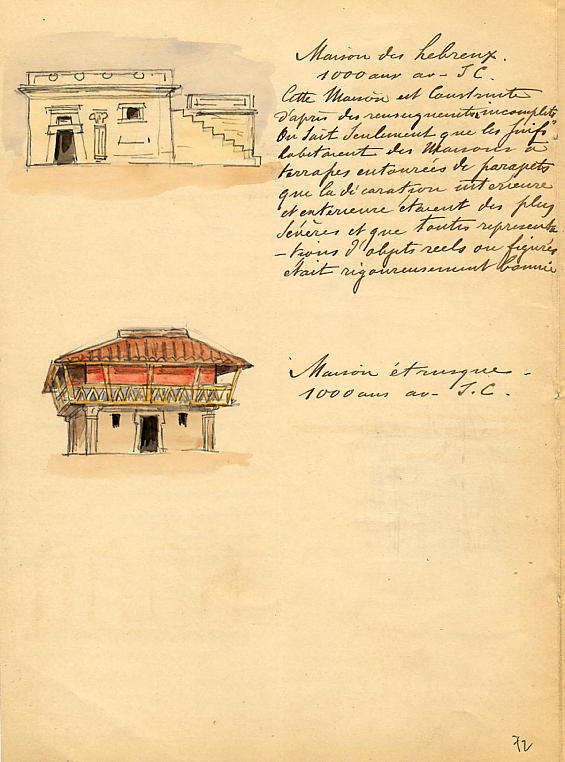 Maison des hebreux.
1000 ans av- J C.
Cette Maison est Construite
d'après des renseignements incomplets
On sait seulement que les juifs
habitaient des Maisons à
terrasses entourées de parapets
que la décaration interieure
et exterieure étaient des plus
sévères et que toutes représenta
-tions d'objets reels ou figurés
était rigoureusement bannie
Maison étrusque -
1000 ans av- J.C.
72